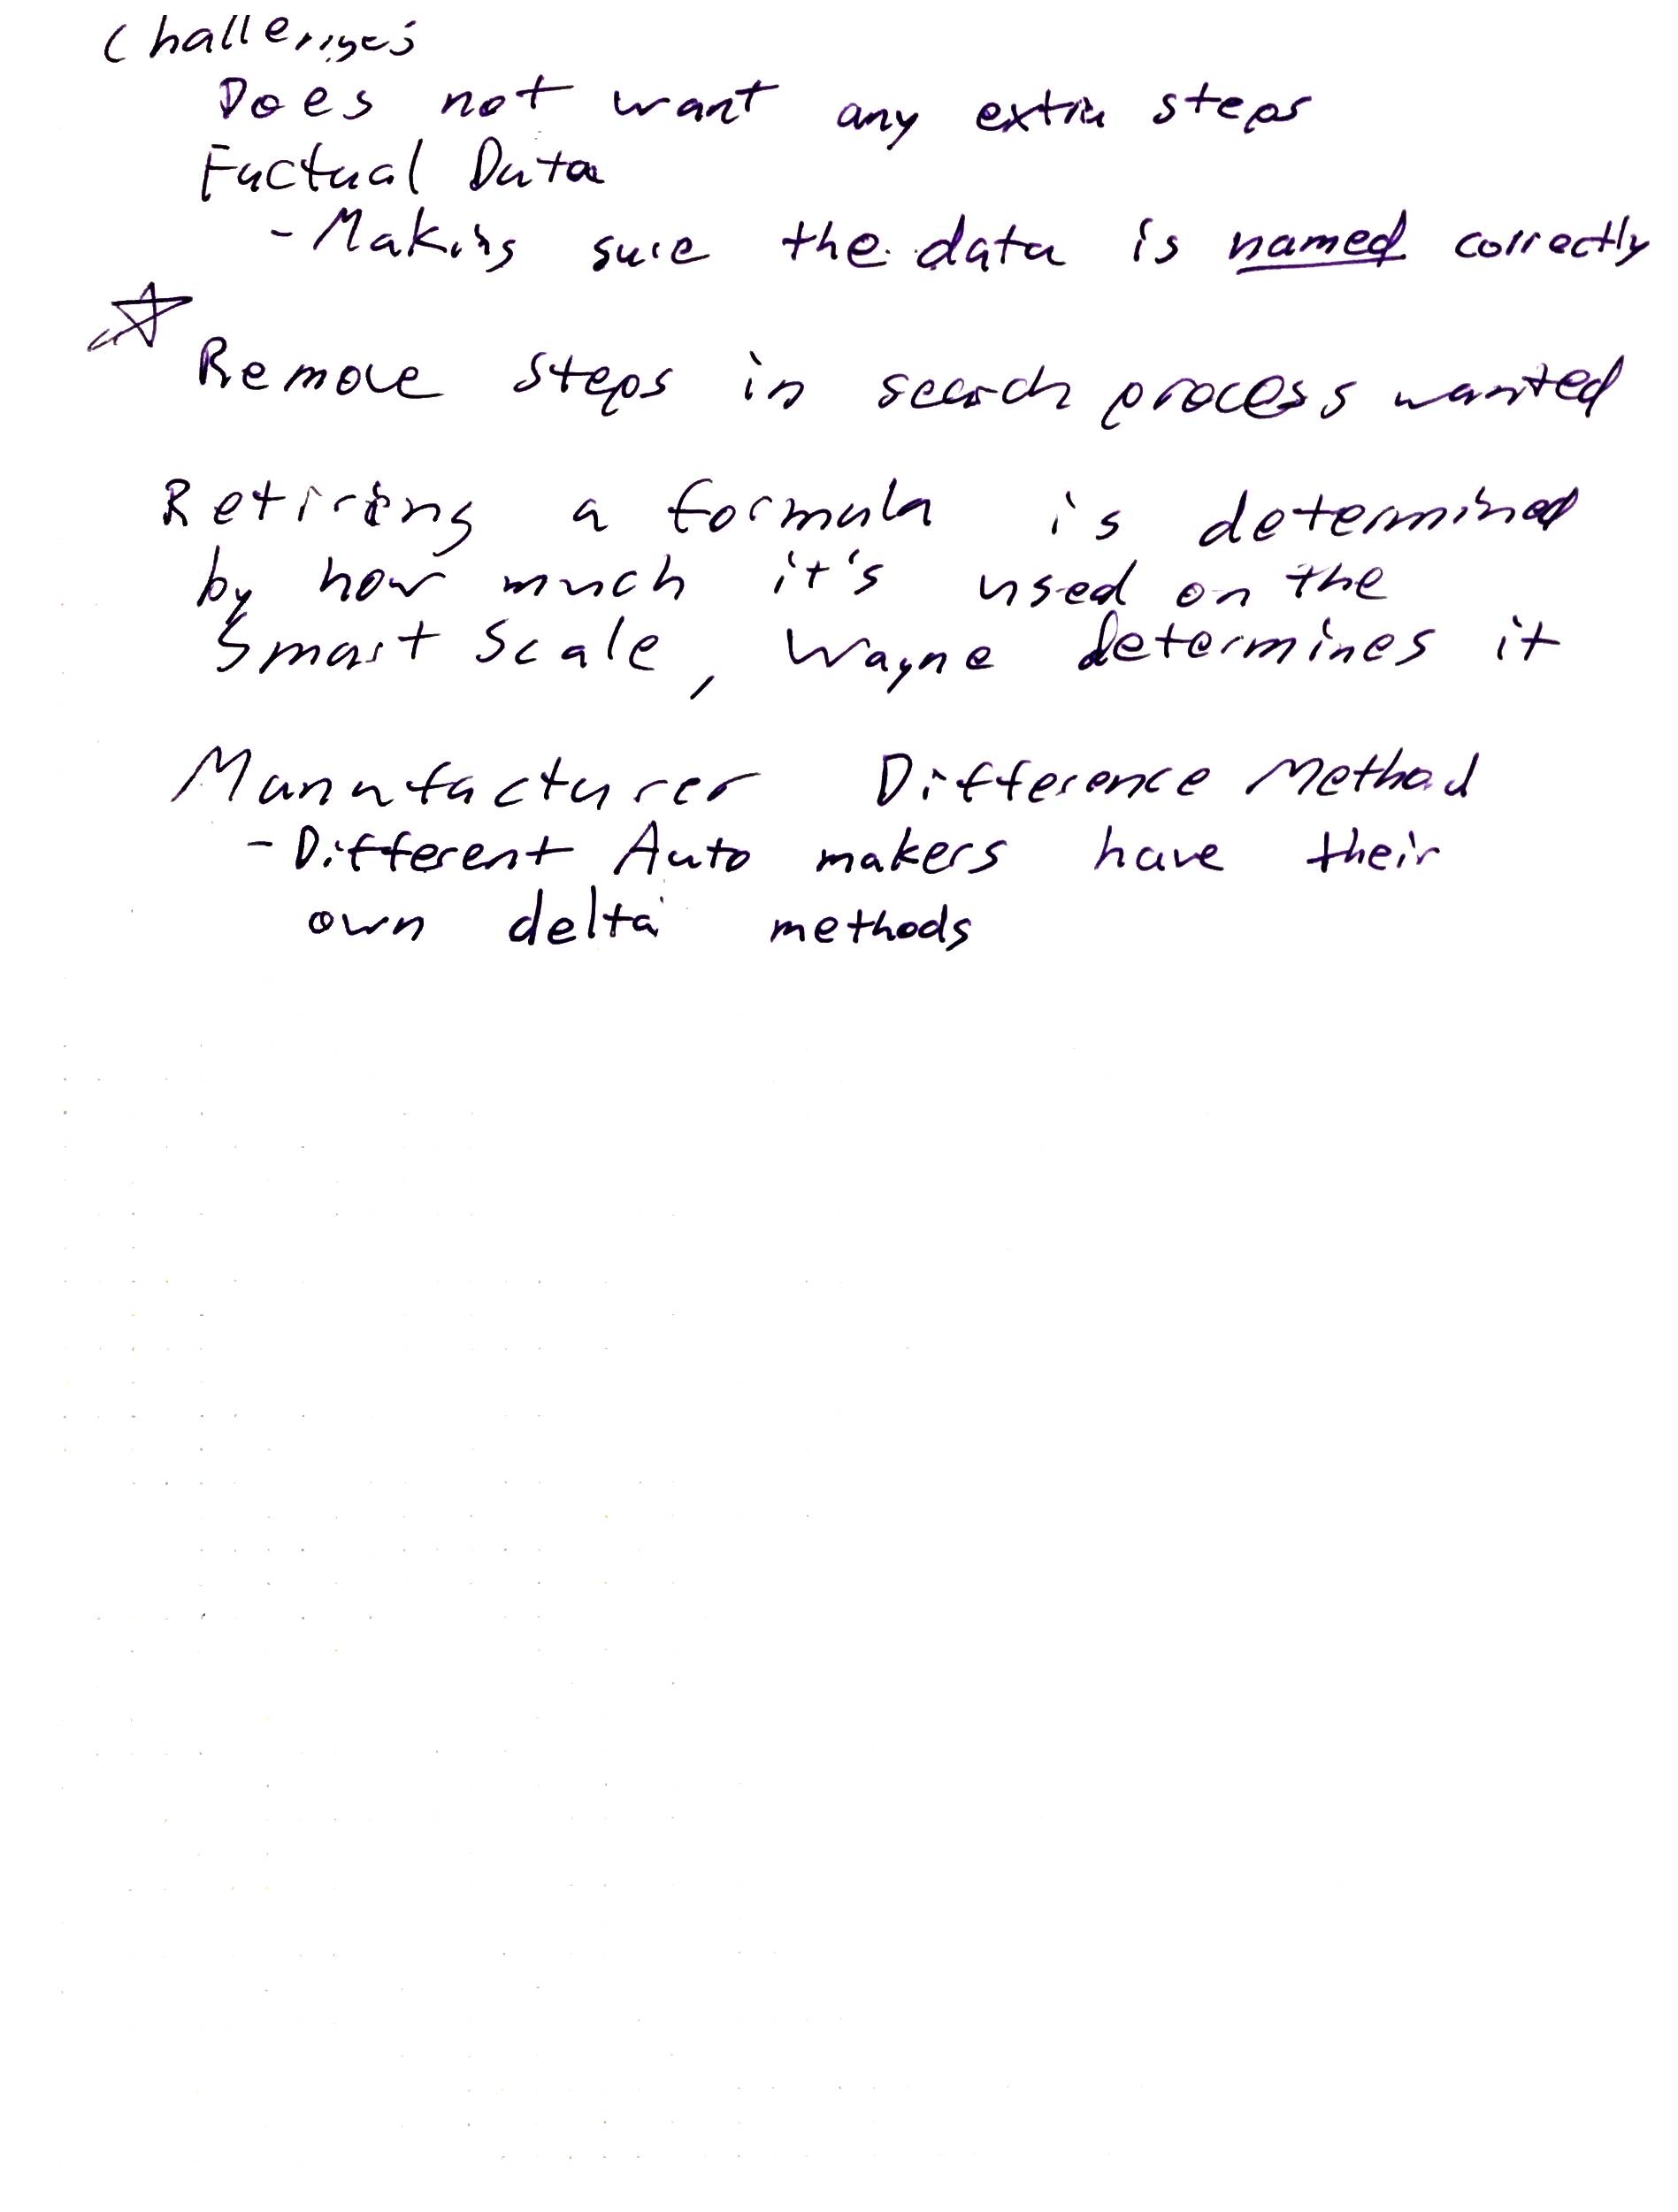 Challenges
Does not want any extra steps
Factual Data
- Making sure the data is named correctly
Remove steps in search process wanted
Retiring a formula is determined
by how much it's used on the
Smart Scale, Wayne determines it
Manufacturer Difference Method
- Different Auto makers have their
own delta methods